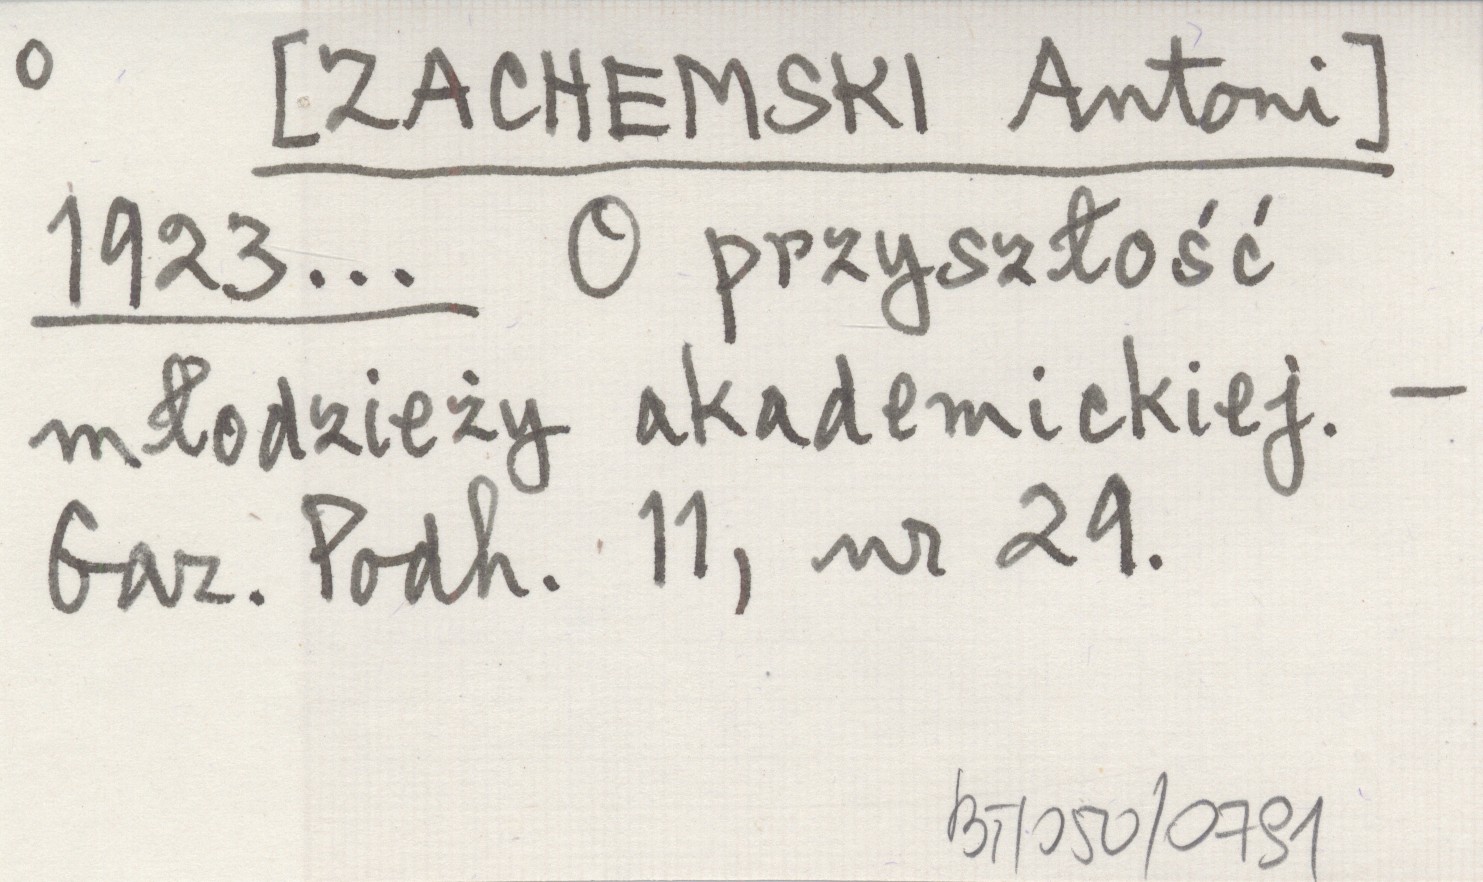 o [ZACHEMSKI Antoni]
1923... O przyszłość
młodzieży akademickiej. —
Gaz. Podh. 11, nr 29.
BT/050/0791